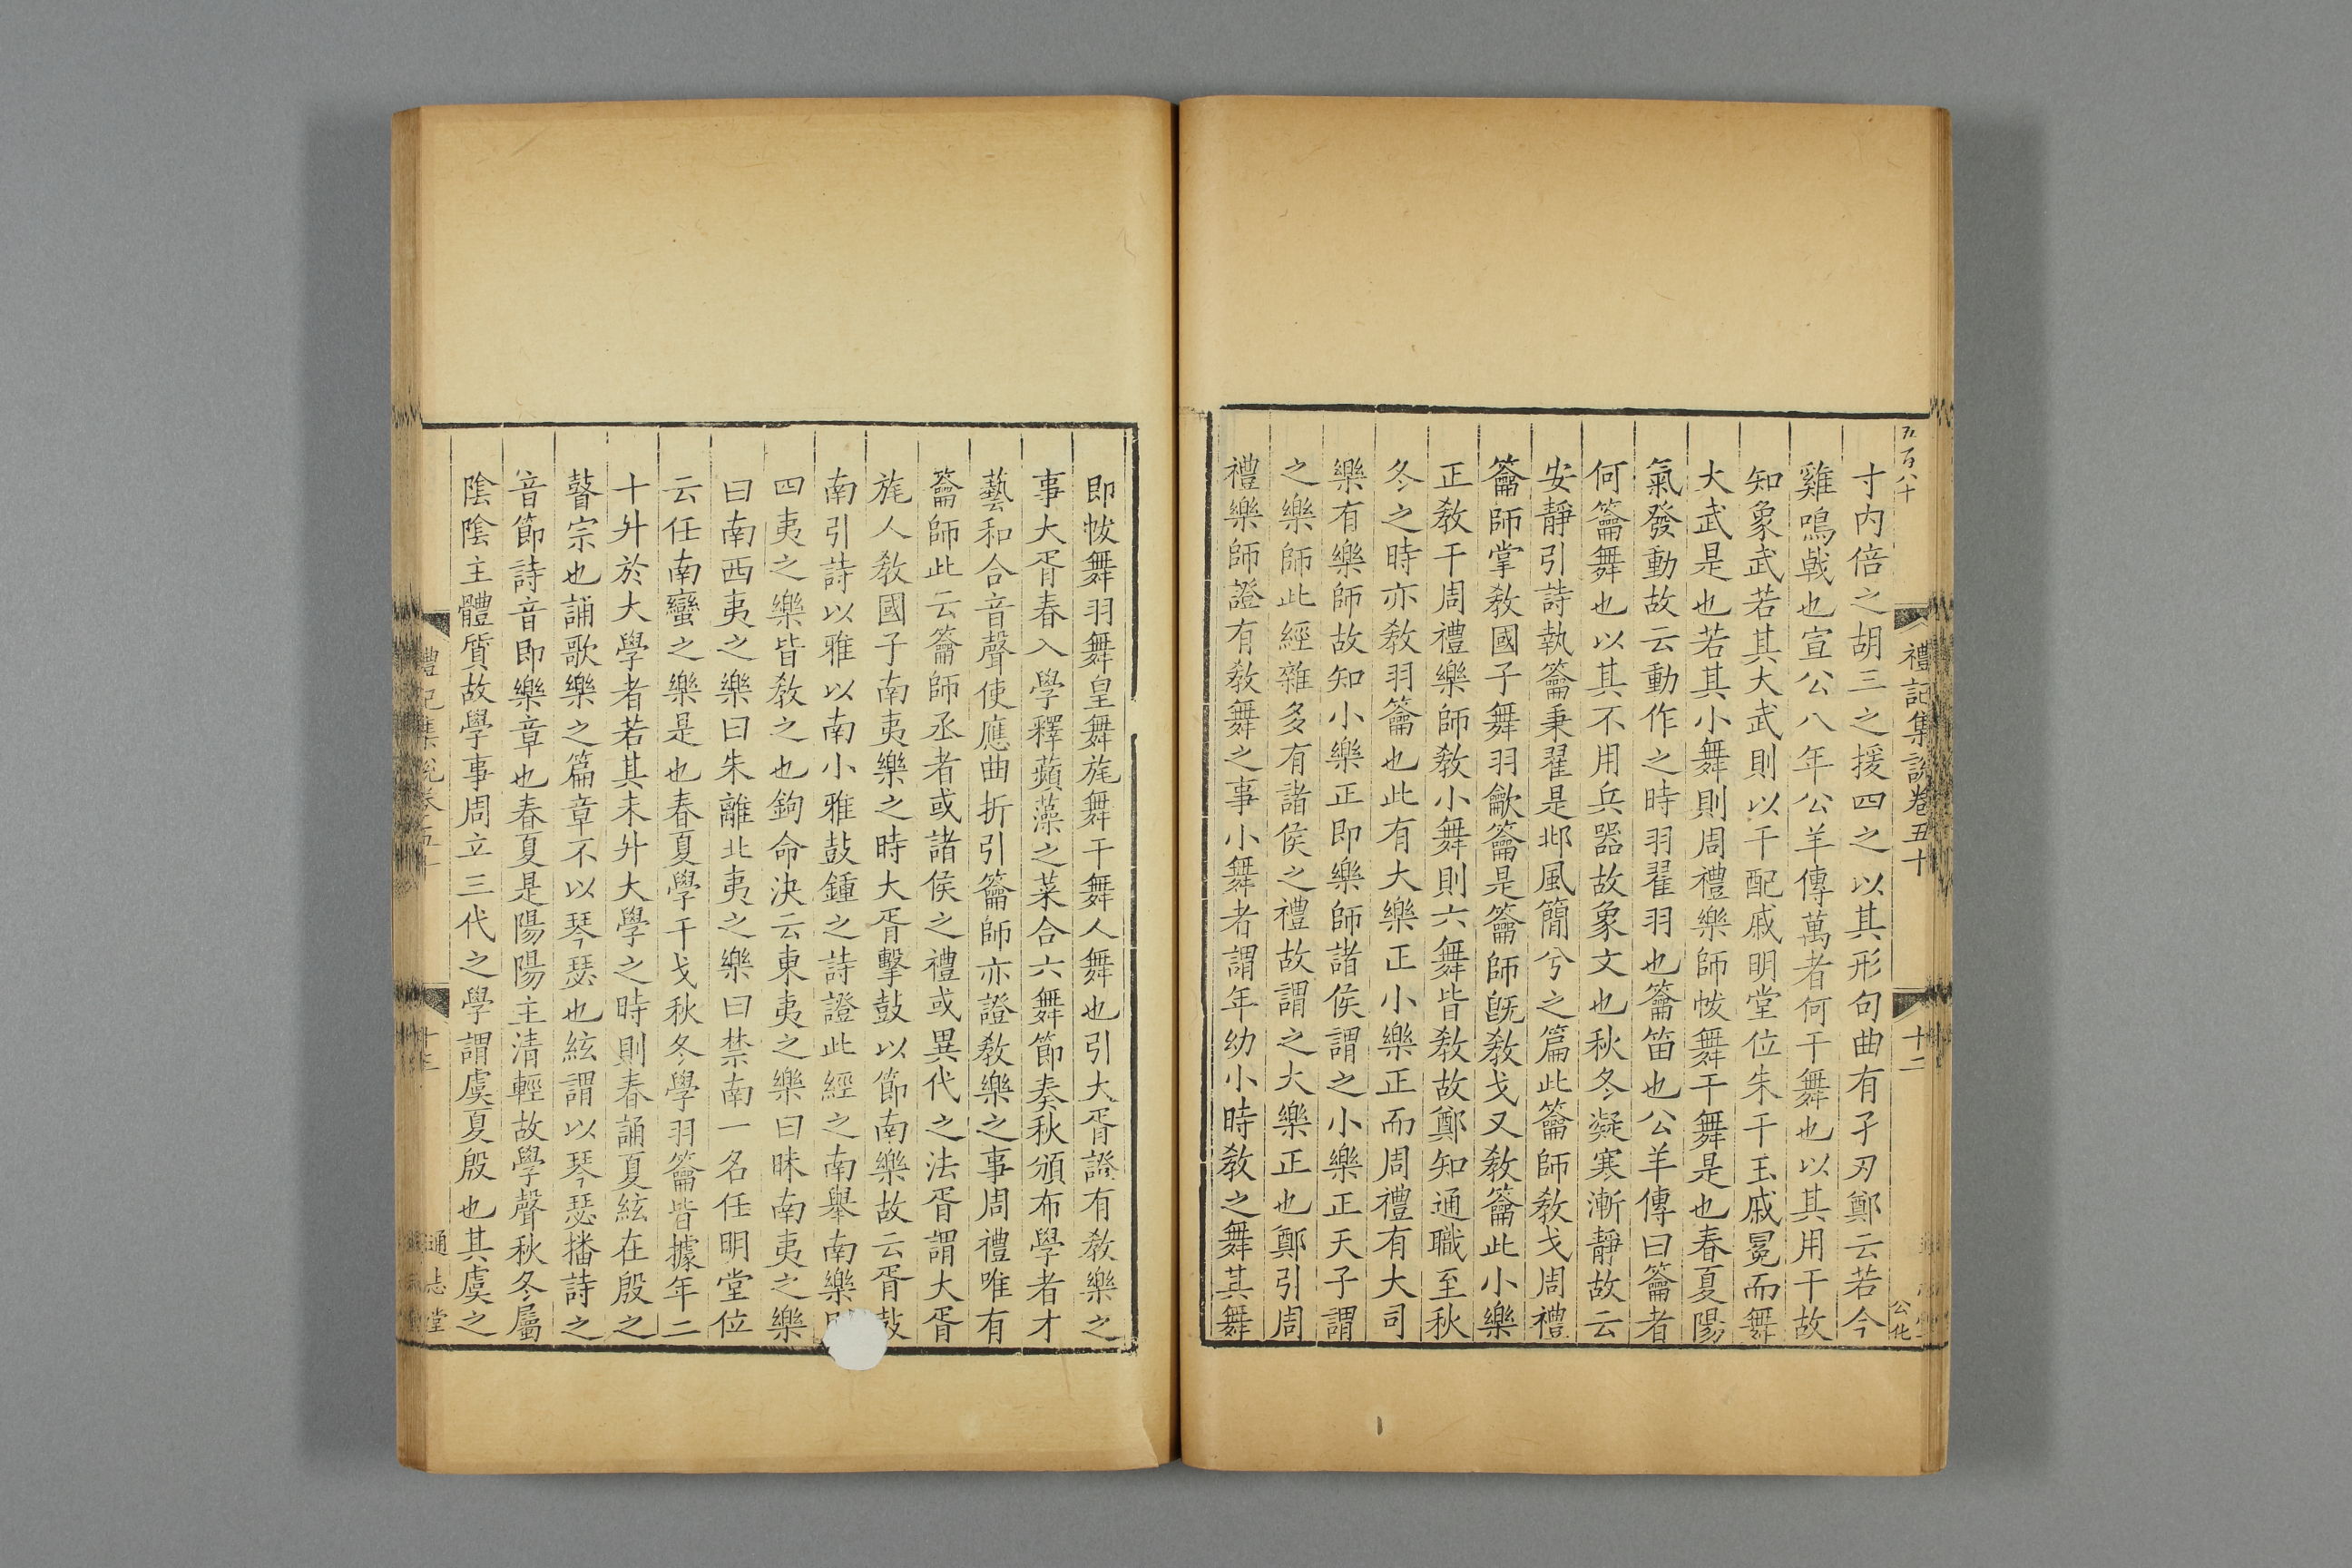 五百八十
禮記集說卷五十
十二
公化
寸內倍之胡三之援四之以其形句曲有孑刃鄭云若今
雞鳴戟也宣公八年公羊傳萬者何干舞也以其用干故
知象武若其大武則以干配戚明堂位朱干玉戚冕而舞
大武是也若其小舞則周禮樂師帗舞干舞是也春夏陽
氣發動故云動作之時羽翟羽也籥笛也公羊傳曰籥者
何籥舞也以其不用兵器故象文也秋冬凝寒漸靜故云
安靜引詩執籥秉翟是邶風簡兮之篇此籥師敎戈周禮
籥師掌敎國子舞羽龡籥是籥師旣敎戈又敎籥此小樂
正敎干周禮樂師敎小舞則六舞皆敎故鄭知通職至秋
冬之時亦敎羽籥也此有大樂正小樂正而周禮有大司
樂有樂師故知小樂正即樂師諸侯謂之小樂正天子謂
之樂師此經雜多有諸侯之禮故謂之大樂正也鄭引周
禮樂師證有敎舞之事小舞者謂年幼小時敎之舞其舞
即帗舞羽舞皇舞旄舞干舞人舞也引大胥證有敎樂之
事大胥春入學釋蘋藻之菜合六舞節奏秋頒布學者才
藝和合音聲使應曲折引籥師亦證敎樂之事周禮唯有
籥師此云籥師丞者或諸侯之禮或異代之法胥謂大胥
旄人敎國子南夷樂之時大胥擊鼓以節南樂故云胥鼓
南引詩以雅以南小雅鼓鍾之詩證此經之南舉南樂
四夷之樂皆敎之也鉤命決云東夷之樂曰昧南夷之樂
曰南西夷之樂曰朱離北夷之樂曰禁南一名任明堂位
云任南蠻之樂是也春夏學干戈秋冬學羽籥皆據年二
十升於大學者若其未升大學之時則春誦夏絃在殷之
瞽宗也誦歌樂之篇章不以琴瑟也絃謂以琴瑟播詩之
音節詩音即樂章也春夏是陽陽主清輕故學聲秋冬屬
陰陰主體質故學事周立三代之學謂虞夏殷也其虞之
禮記集說卷五十
通志堂